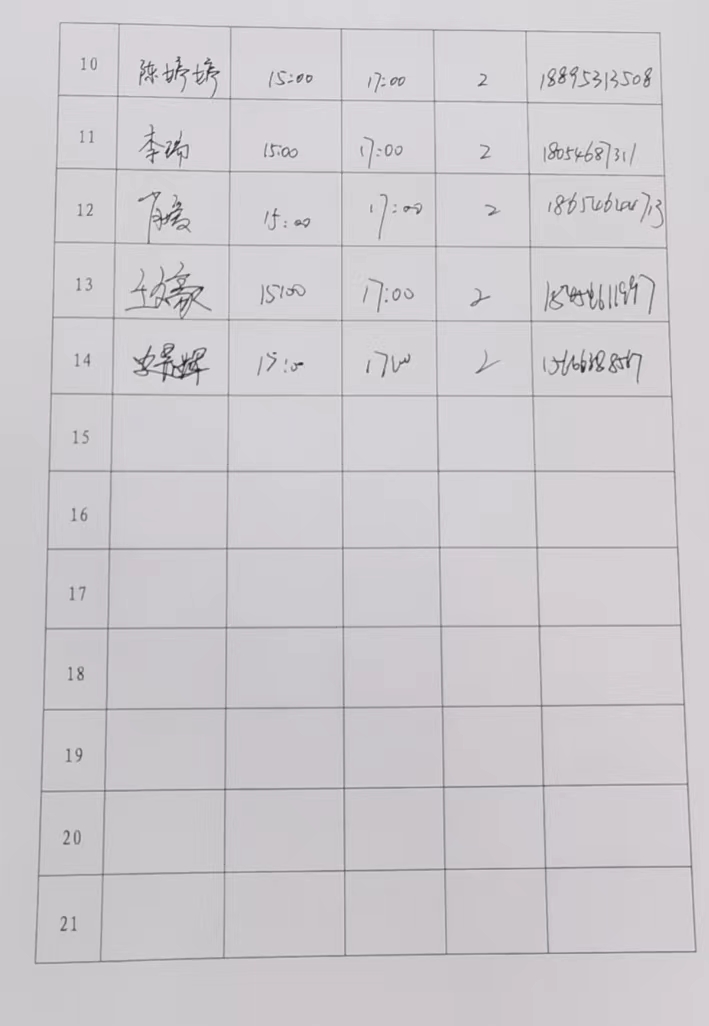 10 陈婷婷 15:00 17:00 2 18895313508
11 李瑞 15:00 17:00 2 18054687311
12 15:00 17:00 2
13 15:00 17:00 2
14 15:00 17:00 2
15
16
17
18
19
20
21